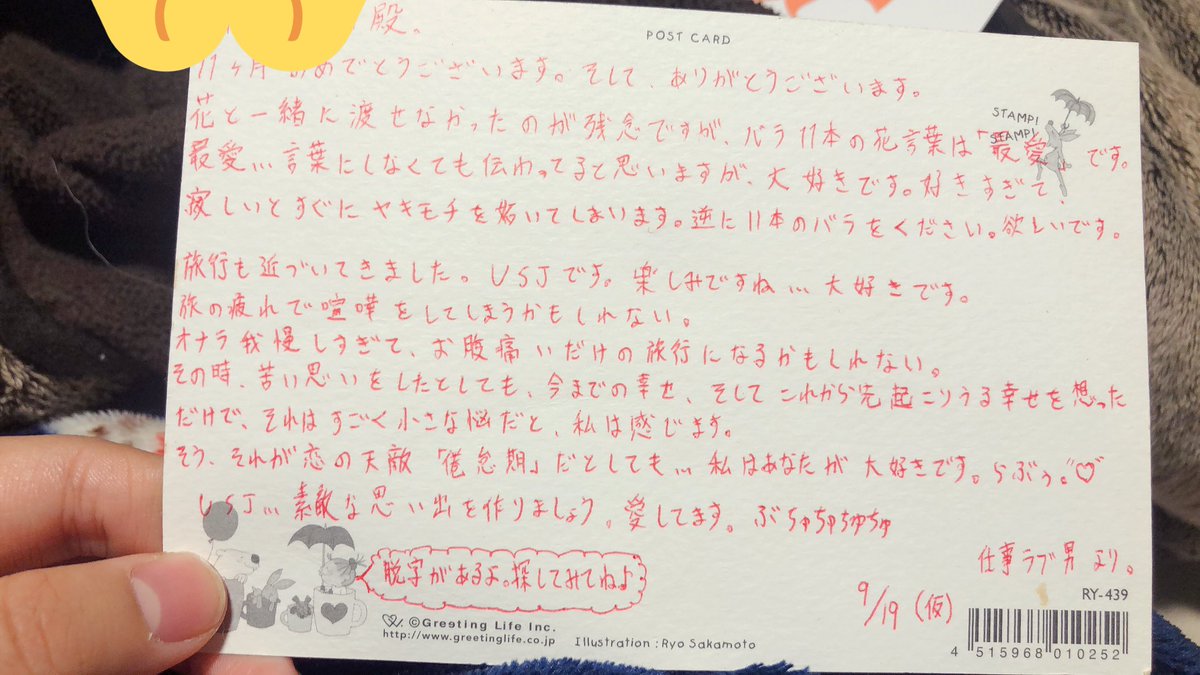 殿。
POST CARD
11ヶ月おめでとうございます。そして、ありがとうございます。
STAMP!
STAMP!
花と一緒に渡せなかったのが残念ですが、バラ11本の花言葉は「最愛」です。
最愛…言葉にしなくても伝わってると思いますが、大好きです。好きすぎて、
寂しいとすぐにヤキモチを妬いてしまいます。逆に11本のバラをください。欲しいです。
旅行も近づいてきました。USJです。楽しみですね…大好きです。
旅の疲れで喧嘩をしてしまうかもしれない。
オナラ我慢しすぎて、お腹痛いだけの旅行になるかもしれない。
その時、苦い思いをしたとしても、今までの幸せ、そしてこれから先起こりうる幸せを想った
だけで、それはすごく小さな悩だと、私は感じます。
そう、それが恋の天敵「倦怠期」だとしても…私はあなたが大好きです。らぶぅ。♡
USJ…素敵な思い出を作りましょう。愛してます。ぶちゅちゅちゅちゅ
仕事ラブ男より。
脱字があるよ。探してみてねよ
9/19(仮)
RY-439
©Greeting Life Inc.
http://www.greetinglife.co.jp
Illustration : Ryo Sakamoto
4 515968 010252